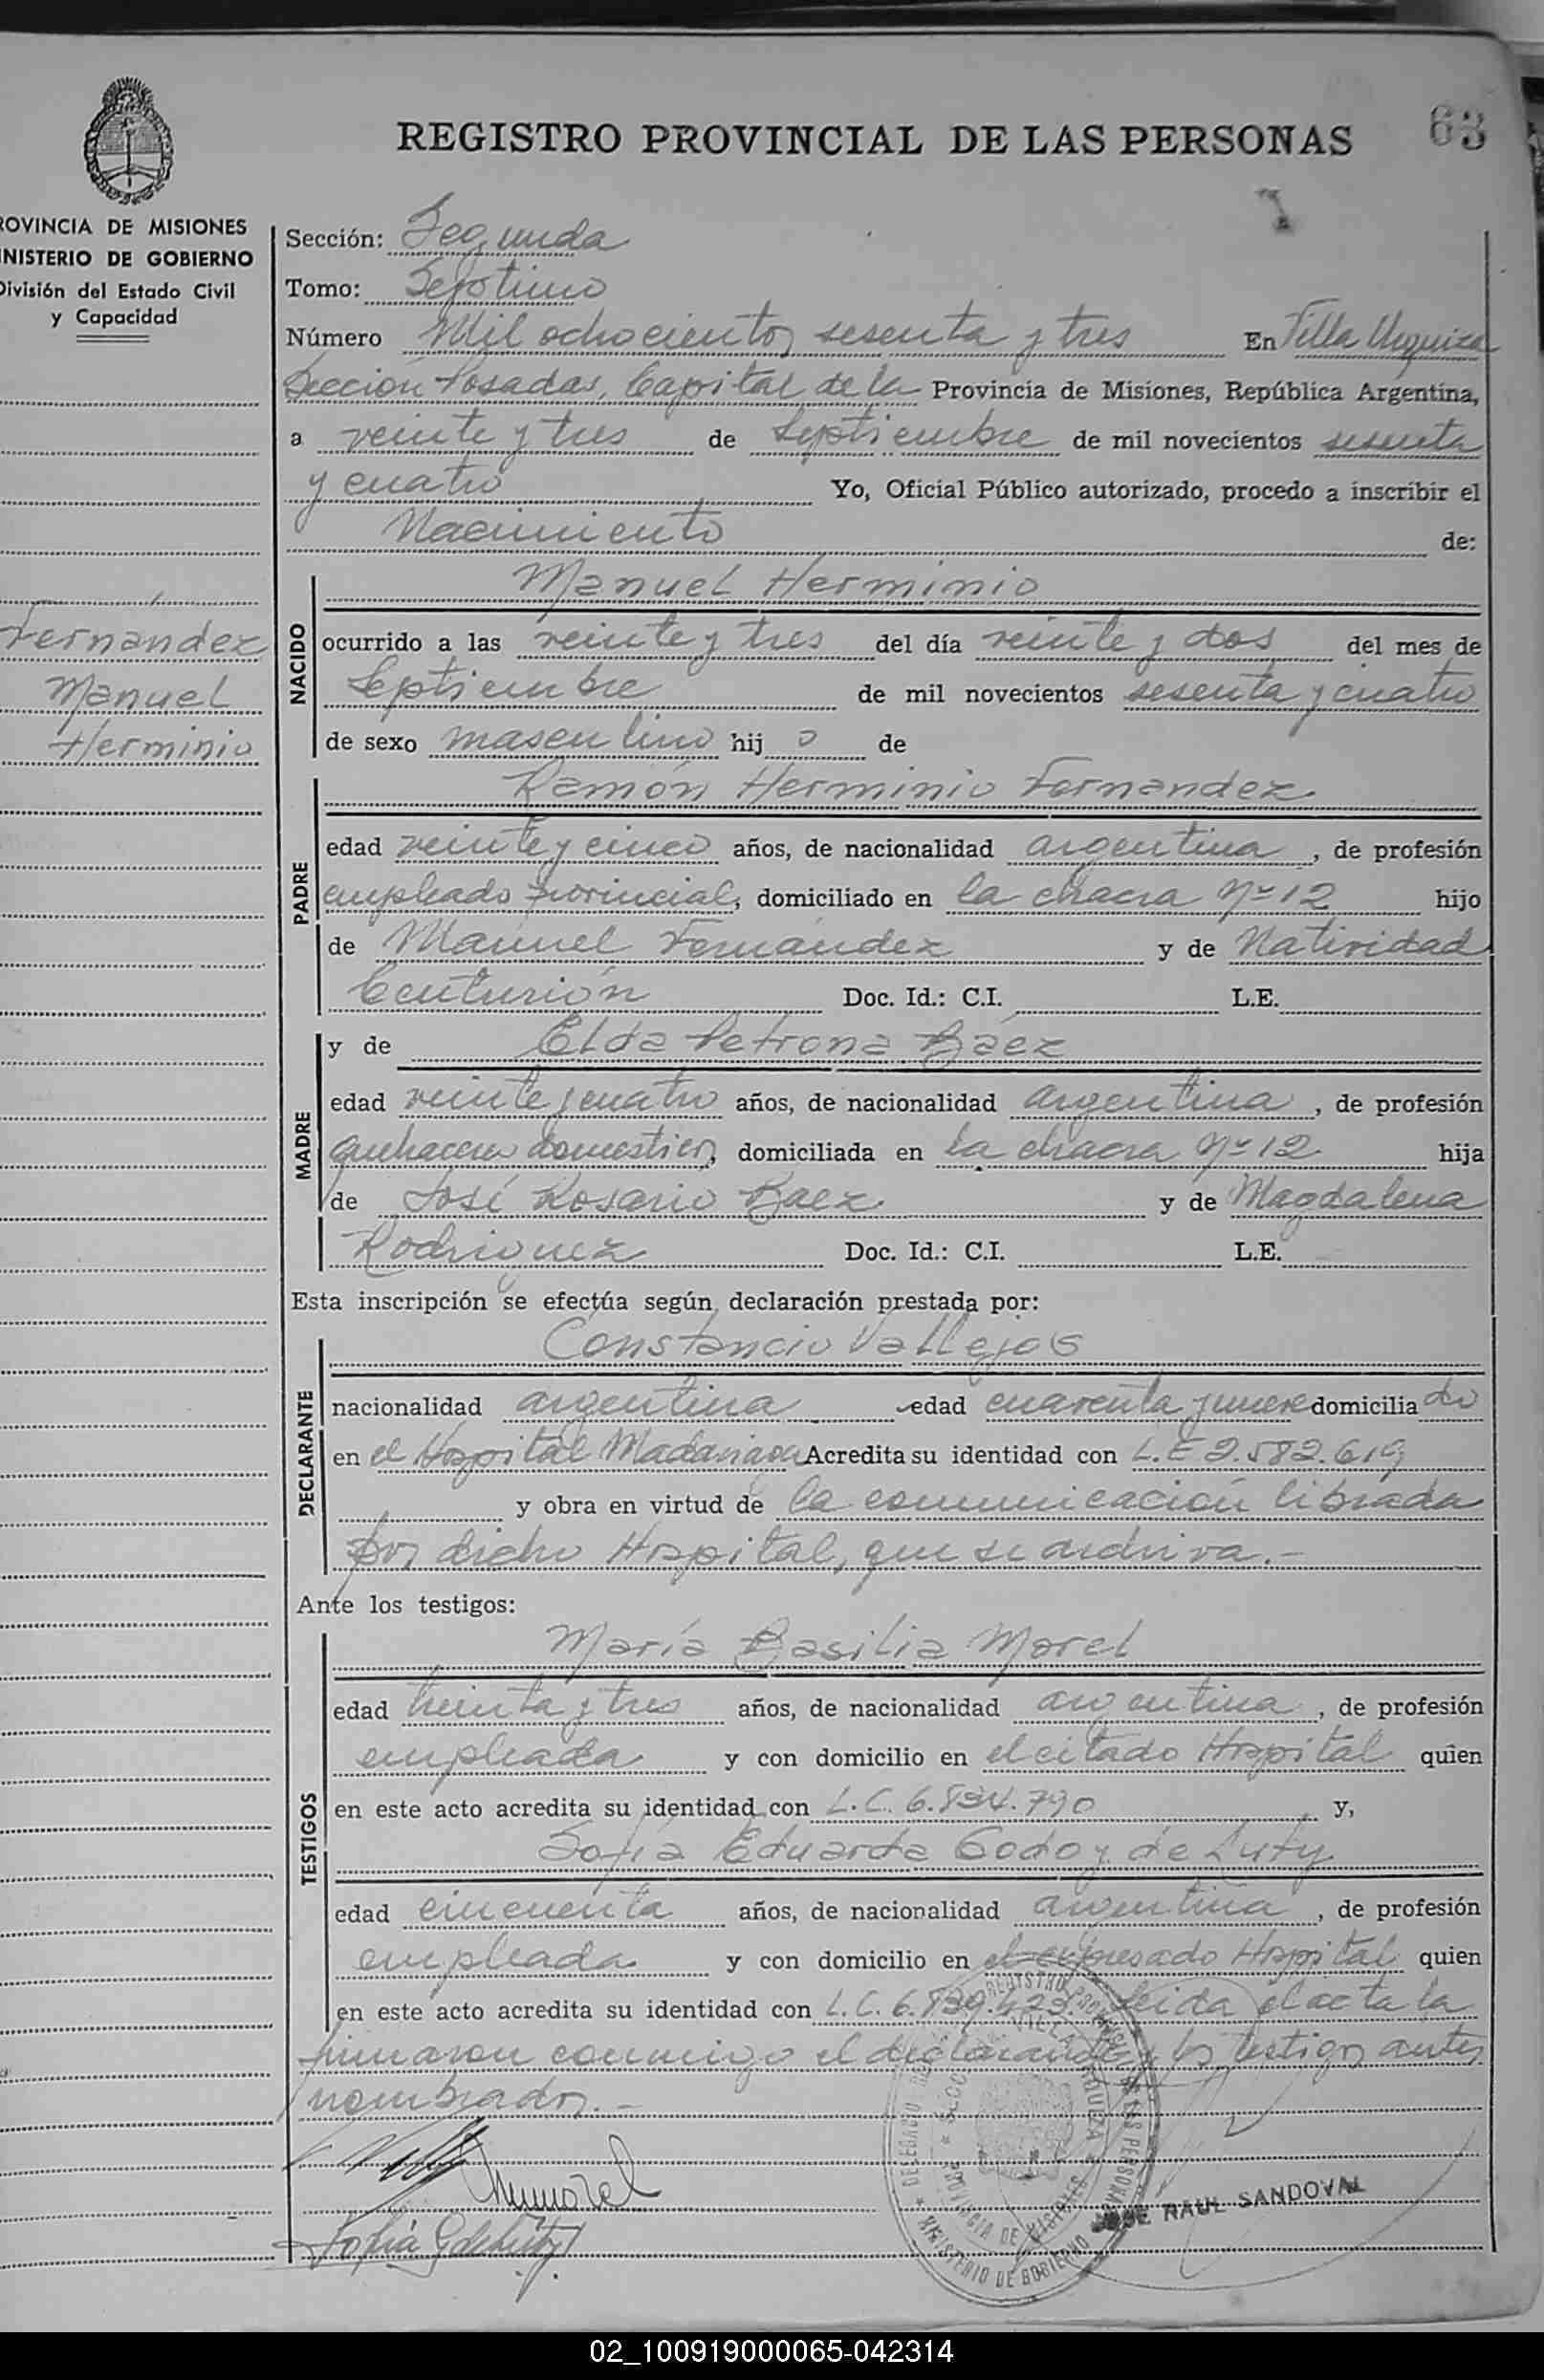 REGISTRO PROVINCIAL DE LAS PERSONAS
63
PROVINCIA DE MISIONES
MINISTERIO DE GOBIERNO
División del Estado Civil
y Capacidad
Fernández
Manuel
Herminio
Sección: Segunda
Tomo: Septimo
Número Mil ochocientos sesenta y tres En Villa Urquiza
Sección Posadas, Capital de la Provincia de Misiones, República Argentina,
a veinte y tres de Septiembre de mil novecientos sesenta
y cuatro Yo, Oficial Público autorizado, procedo a inscribir el
Nacimiento de:
NACIDO
Manuel Herminio
ocurrido a las veinte y tres del día veinte y dos del mes de
Septiembre de mil novecientos sesenta y cuatro
de sexo masculino hijo de
PADRE
Ramón Herminio Fernandez
edad veinte y cinco años, de nacionalidad argentina, de profesión
empleado provincial, domiciliado en la chacra Nº 12 hijo
de Manuel Fernández y de Natividad
Centurión Doc. Id.: C.I. L.E.
MADRE
y de Elda Petrona Baez
edad veinte y cuatro años, de nacionalidad argentina, de profesión
quehaceres domesticos, domiciliada en la chacra Nº 12 hija
de José Rosario Baez y de Magdalena
Rodriguez Doc. Id.: C.I. L.E.
Esta inscripción se efectúa según declaración prestada por:
DECLARANTE
Constancio Vallejos
nacionalidad argentina edad cuarenta y nueve domiciliado
en el Hospital Madariaga Acredita su identidad con L.E 2.582.619
y obra en virtud de la comunicación librada
por dicho Hospital, que se archiva.-
Ante los testigos:
TESTIGOS
María Basilia Morel
edad treinta y tres años, de nacionalidad argentina, de profesión
empleada y con domicilio en el citado Hospital quien
en este acto acredita su identidad con L.C. 6.834.790 y,
Sofía Eduarda Godoy de
edad cincuenta años, de nacionalidad argentina, de profesión
empleada y con domicilio en el expresado Hospital quien
en este acto acredita su identidad con L.C. 6.839.423. Leida el acta la
firmaron conmigo el declarante y los testigos antes
nombrados.-
JOSE RAUL SANDOVAL
02_100919000065-042314